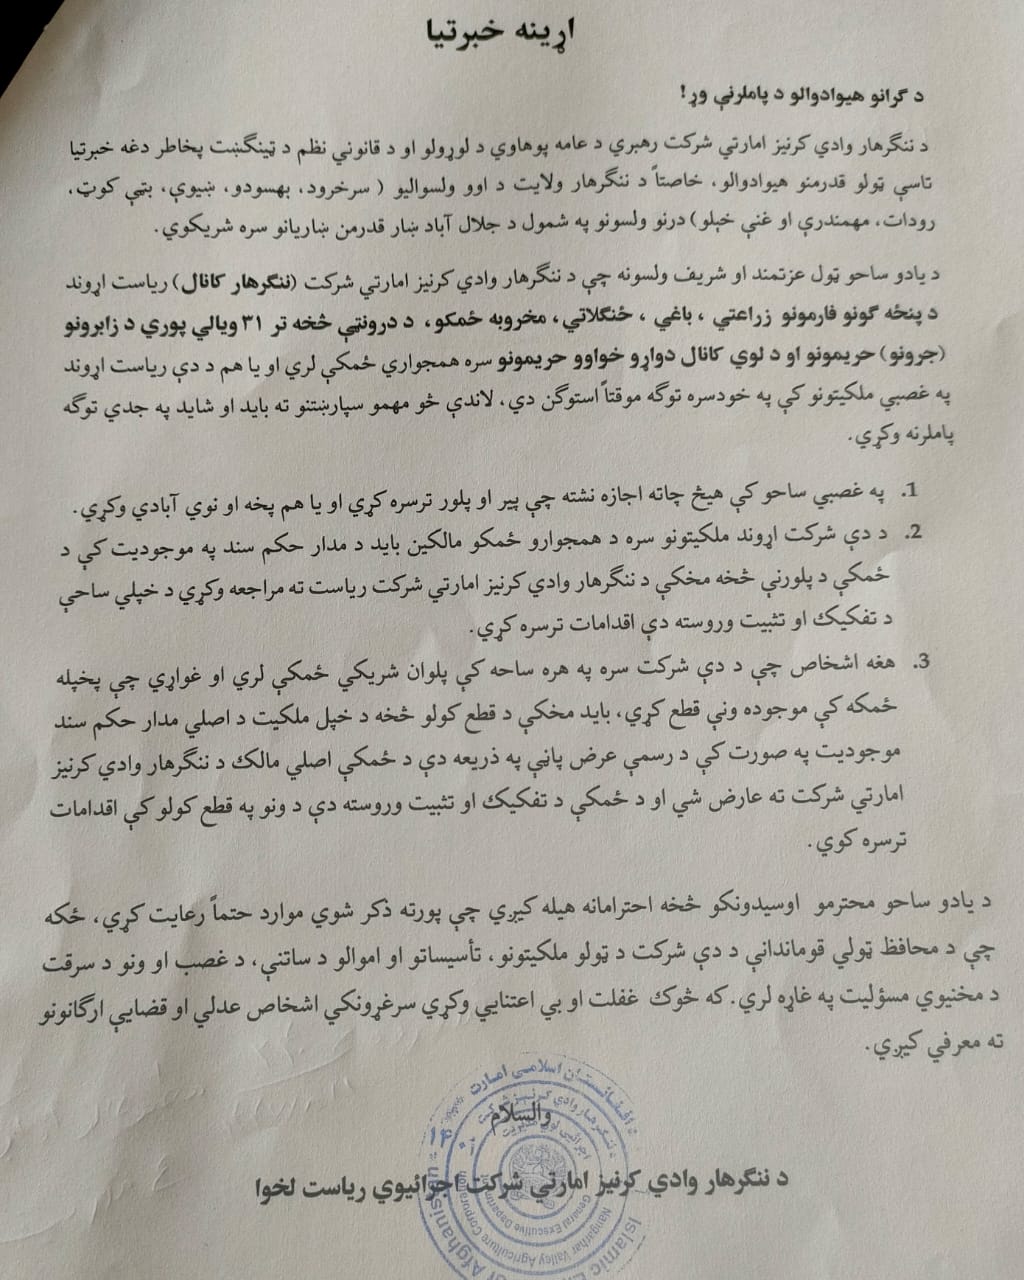 اړینه خبرتیا
د ګرانو هیوادوالو د پاملرنې وړ!
د ننګرهار وادي کرنیز امارتي شرکت رهبري د عامه پوهاوي د لوړولو او د قانوني نظم د ټینګښت پخاطر دغه خبرتیا
تاسې ټولو قدرمنو هیوادوالو، خاصتاً د ننګرهار ولایت د اوو ولسوالیو ( سرخرود، بهسودو، ښیوې، بټې کوټ،
رودات، مهمندرې او غنې خېلو) درنو ولسونو په شمول د جلال آباد ښار قدرمن ښاریانو سره شریکوي.
د یادو ساحو ټول عزتمند او شریف ولسونه چې د ننګرهار وادي کرنیز امارتي شرکت (ننګرهار کانال) ریاست اړوند
د پنځه ګونو فارمونو زراعتي ، باغي ، ځنګلاتي، مخروبه ځمکو، د درونټې څخه تر ۳۱ ویالې پورې د زابرونو
(جرونو) حریمونو او د لوي کانال دواړو خواوو حریمونو سره همجواری ځمکې لري او یا هم د دې ریاست اړوند
په غصبي ملکیتونو کې په خودسره توګه موقتاً استوګن دي، لاندې څو مهمو سپارښتنو ته باید او شاید په جدي توګه
پاملرنه وکړي.
1. په غصبي ساحو کې هیڅ چاته اجازه نشته چې پیر او پلور ترسره کړي او یا هم پخه او نوې آبادي وکړي.
2. د دې شرکت اړوند ملکیتونو سره د همجوارو ځمکو مالکین باید د مدار حکم سند په موجودیت کې د
ځمکې د پلورنې څخه مخکې د ننګرهار وادي کرنیز امارتي شرکت ریاست ته مراجعه وکړي د خپلې ساحې
د تفکیک او تثبیت وروسته دې اقدامات ترسره کړي.
3. هغه اشخاص چې د دې شرکت سره په هره ساحه کې پلوان شریکې ځمکې لري او غواړي چې پخپله
ځمکه کې موجوده ونې قطع کړي، باید مخکې د قطع کولو څخه د خپل ملکیت د اصلي مدار حکم سند
موجودیت په صورت کې د رسمي عرض پاڼې په ذریعه دې د ځمکې اصلي مالک د ننګرهار وادي کرنیز
امارتي شرکت ته عارض شي او د ځمکې د تفکیک او تثبیت وروسته دې د ونو په قطع کولو کې اقدامات
ترسره کوي.
د یادو ساحو محترمو اوسیدونکو څخه احترامانه هیله کیږي چې پورته ذکر شوي موارد حتماً رعایت کړي، ځکه
چې د محافظ ټولي قومانداني د دې شرکت د ټولو ملکیتونو، تأسیساتو او اموالو د ساتنې، د غصب او ونو د سرقت
د مخنیوي مسؤلیت په غاړه لري. که څوک غفلت او بي اعتنایي وکړي سرغړونکي اشخاص عدلي او قضایې ارګانونو
ته معرفي کیږي.
والسلام
د ننګرهار وادي کرنیز امارتي شرکت اجرائیوي ریاست لخوا
د افغانستان اسلامي امارت
د ننګرهار وادي کرنیز شرکت
Nangarhar Valley Agriculture
General Executive
Islamic
Afghanistan